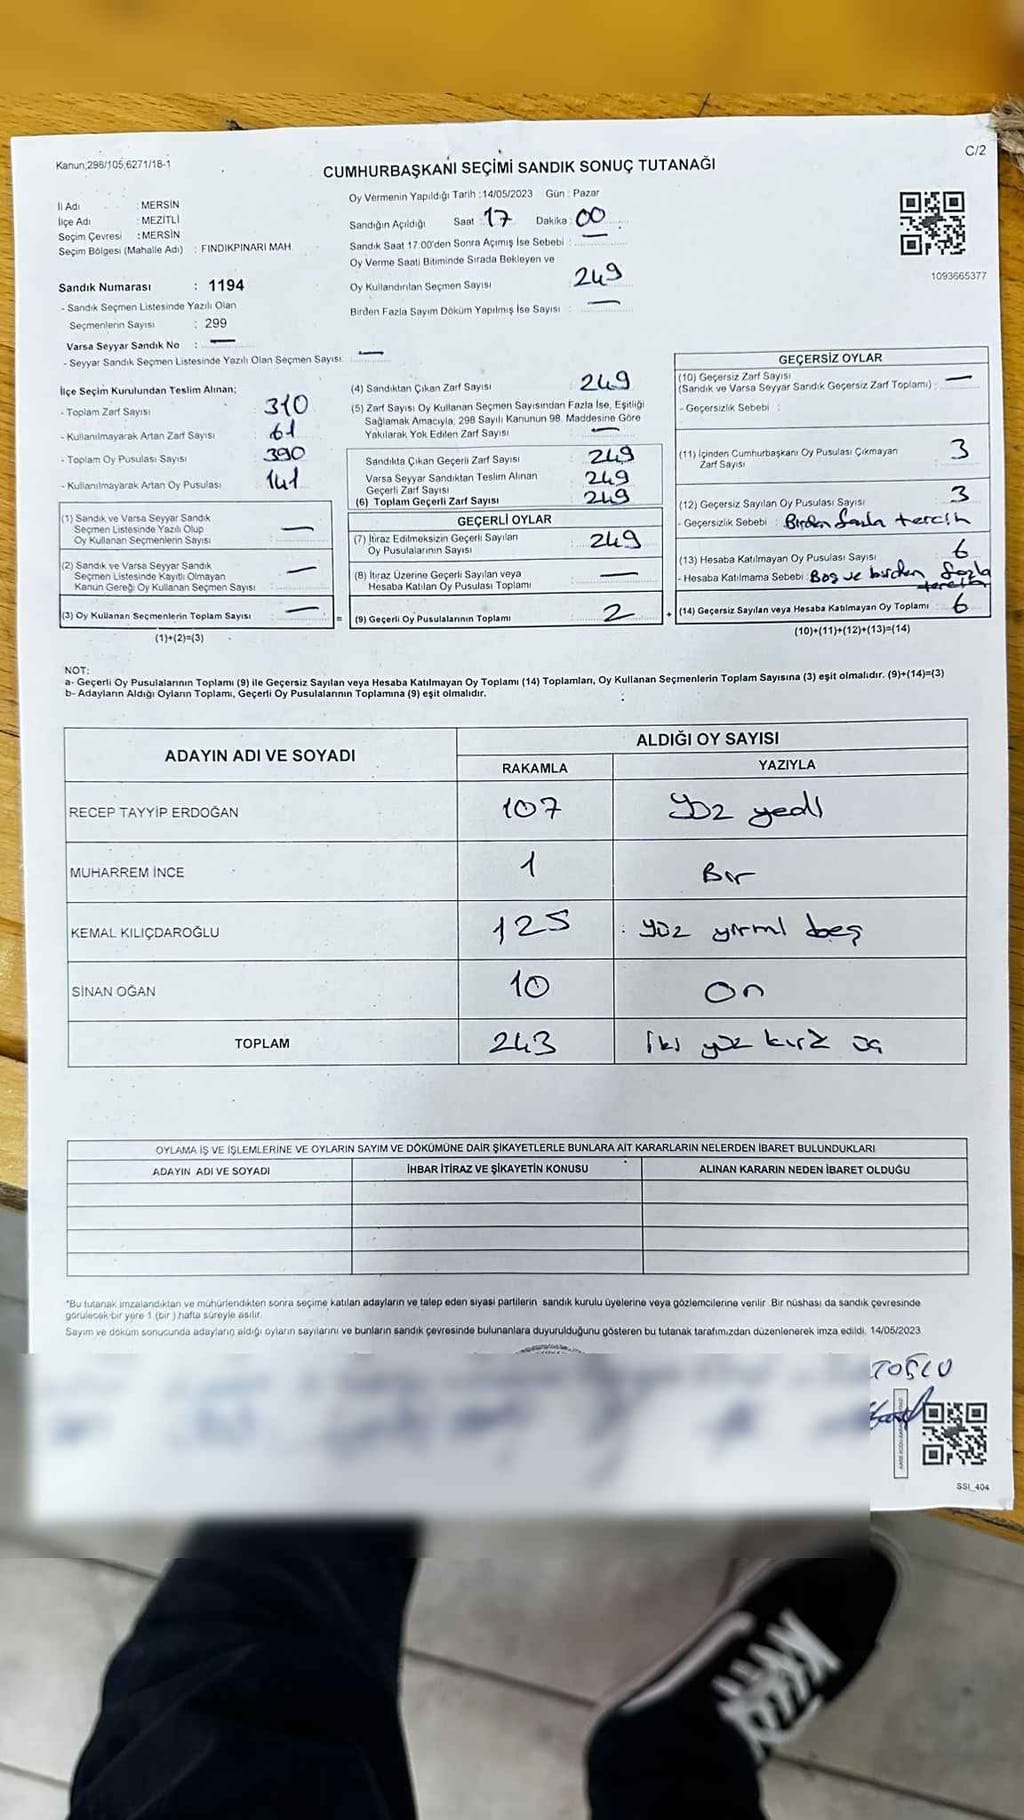 Kanun;298/105,6271/18-1
C/2
CUMHURBAŞKANI SEÇİMİ SANDIK SONUÇ TUTANAĞI
İl Adı : MERSİN
İlçe Adı : MEZİTLİ
Seçim Çevresi : MERSİN
Seçim Bölgesi (Mahalle Adı) : FINDIKPINARI MAH.
Oy Vermenin Yapıldığı Tarih :14/05/2023 Gün : Pazar
Sandığın Açıldığı Saat : 17 Dakika : 00
Sandık Saat 17:00'den Sonra Açımış İse Sebebi : —
Oy Verme Saati Bitiminde Sırada Bekleyen ve
Oy Kullandırılan Seçmen Sayısı : 249
Birden Fazla Sayım Döküm Yapılmış İse Sayısı : —
1093665377
Sandık Numarası : 1194
- Sandık Seçmen Listesinde Yazılı Olan
Seçmenlerin Sayısı : 299
Varsa Seyyar Sandık No : —
- Seyyar Sandık Seçmen Listesinde Yazılı Olan Seçmen Sayısı: —
İlçe Seçim Kurulundan Teslim Alınan;
- Toplam Zarf Sayısı 310
- Kullanılmayarak Artan Zarf Sayısı 61
- Toplam Oy Pusulası Sayısı 390
- Kullanılmayarak Artan Oy Pusulası 141
(1) Sandık ve Varsa Seyyar Sandık
Seçmen Listesinde Yazılı Olup
Oy Kullanan Seçmenlerin Sayısı —
(2) Sandık ve Varsa Seyyar Sandık
Seçmen Listesinde Kayıtlı Olmayan
Kanun Gereği Oy Kullanan Seçmen Sayısı —
(3) Oy Kullanan Seçmenlerin Toplam Sayısı —
(1)+(2)=(3)
(4) Sandıktan Çıkan Zarf Sayısı 249
(5) Zarf Sayısı Oy Kullanan Seçmen Sayısından Fazla İse, Eşitliği
Sağlamak Amacıyla, 298 Sayılı Kanunun 98. Maddesine Göre
Yakılarak Yok Edilen Zarf Sayısı —
Sandıkta Çıkan Geçerli Zarf Sayısı 249
Varsa Seyyar Sandıktan Teslim Alınan
Geçerli Zarf Sayısı 249
(6) Toplam Geçerli Zarf Sayısı 249
GEÇERLİ OYLAR
(7) İtiraz Edilmeksizin Geçerli Sayılan
Oy Pusulalarının Sayısı 249
(8) İtiraz Üzerine Geçerli Sayılan veya
Hesaba Katılan Oy Pusulası Toplamı —
= (9) Geçerli Oy Pusulalarının Toplamı 2
GEÇERSİZ OYLAR
(10) Geçersiz Zarf Sayısı
(Sandık ve Varsa Seyyar Sandık Geçersiz Zarf Toplamı) : —
- Geçersizlik Sebebi :
(11) İçinden Cumhurbaşkanı Oy Pusulası Çıkmayan
Zarf Sayısı 3
(12) Geçersiz Sayılan Oy Pusulası Sayısı 3
- Geçersizlik Sebebi : Birden fazla tercih
(13) Hesaba Katılmayan Oy Pusulası Sayısı 6
- Hesaba Katılmama Sebebi : Boş ve birden fazla
tercih
+ (14) Geçersiz Sayılan veya Hesaba Katılmayan Oy Toplamı 6
(10)+(11)+(12)+(13)=(14)
NOT:
a- Geçerli Oy Pusulalarının Toplamı (9) ile Geçersiz Sayılan veya Hesaba Katılmayan Oy Toplamı (14) Toplamları, Oy Kullanan Seçmenlerin Toplam Sayısına (3) eşit olmalıdır. (9)+(14)=(3)
b- Adayların Aldığı Oyların Toplamı, Geçerli Oy Pusulalarının Toplamına (9) eşit olmalıdır.
ADAYIN ADI VE SOYADI
ALDIĞI OY SAYISI
RAKAMLA YAZIYLA
RECEP TAYYİP ERDOĞAN 107 Yüz yedi
MUHARREM İNCE 1 Bir
KEMAL KILIÇDAROĞLU 125 Yüz yirmi beş
SİNAN OĞAN 10 On
TOPLAM 243 İki yüz kırk üç
OYLAMA İŞ VE İŞLEMLERİNE VE OYLARIN SAYIM VE DÖKÜMÜNE DAİR ŞİKAYETLERLE BUNLARA AİT KARARLARIN NELERDEN İBARET BULUNDUKLARI
ADAYIN ADI VE SOYADI İHBAR İTİRAZ VE ŞİKAYETİN KONUSU ALINAN KARARIN NEDEN İBARET OLDUĞU
"Bu tutanak imzalandıktan ve mühürlendikten sonra seçime katılan adayların ve talep eden siyasi partilerin sandık kurulu üyelerine veya gözlemcilerine verilir .Bir nüshası da sandık çevresinde
görülecek bir yere 1 (bir ) hafta süreyle asılır.
Sayım ve döküm sonucunda adayların aldığı oyların sayılarını ve bunların sandık çevresinde bulunanlara duyurulduğunu gösteren bu tutanak tarafımızdan düzenlenerek imza edildi. 14/05/2023
SSI_404